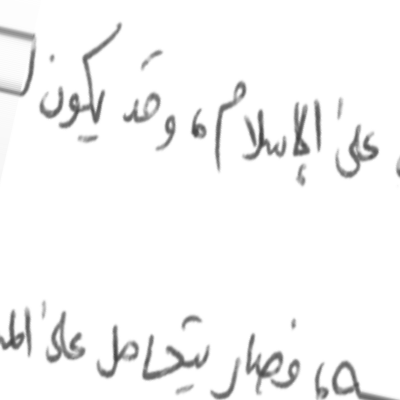 على الإسلام، وقد يكون
ـه، فصار يتحامل على